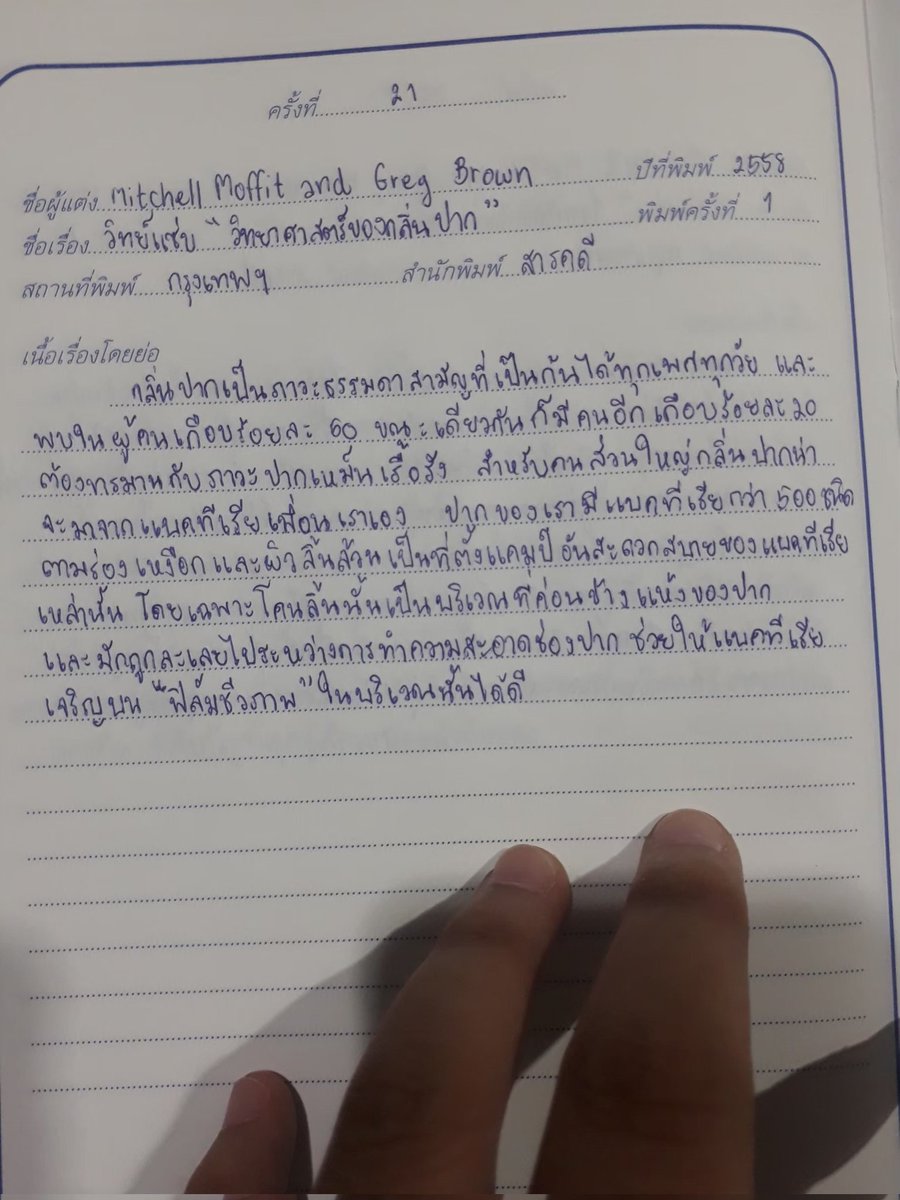 ครั้งที่ 21
ชื่อผู้แต่ง Mitchell Moffit and Greg Brown ปีที่พิมพ์ 2558
ชื่อเรื่อง วิทย์แซ่บ "วิทยาศาสตร์ของกลิ่นปาก" พิมพ์ครั้งที่ 1
สถานที่พิมพ์ กรุงเทพฯ สำนักพิมพ์ สารคดี
เนื้อเรื่องโดยย่อ
กลิ่นปากเป็นภาวะธรรมดาสามัญที่เป็นกันได้ทุกเพศทุกวัย และ
พบในผู้คนเกือบร้อยละ 60 ขณะเดียวกันก็มีคนอีกเกือบร้อยละ 20
ต้องทรมานกับภาวะปากเหม็นเรื้อรัง สำหรับคนส่วนใหญ่กลิ่นปากน่า
จะมาจากแบคทีเรียเพื่อนเราเอง ปากของเรามีแบคทีเรียกว่า 500 ชนิด
ตามร่องเหงือกและผิวลิ้นล้วนเป็นที่ตั้งแคมป์อันสะดวกสบายของแบคทีเรีย
เหล่านั้น โดยเฉพาะโคนลิ้นนั้นเป็นบริเวณที่ค่อนข้างแห้งของปาก
และมักถูกละเลยไประหว่างการทำความสะอาดช่องปาก ช่วยให้แบคทีเรีย
เจริญบน "ฟิล์มชีวภาพ" ในบริเวณนั้นได้ดี